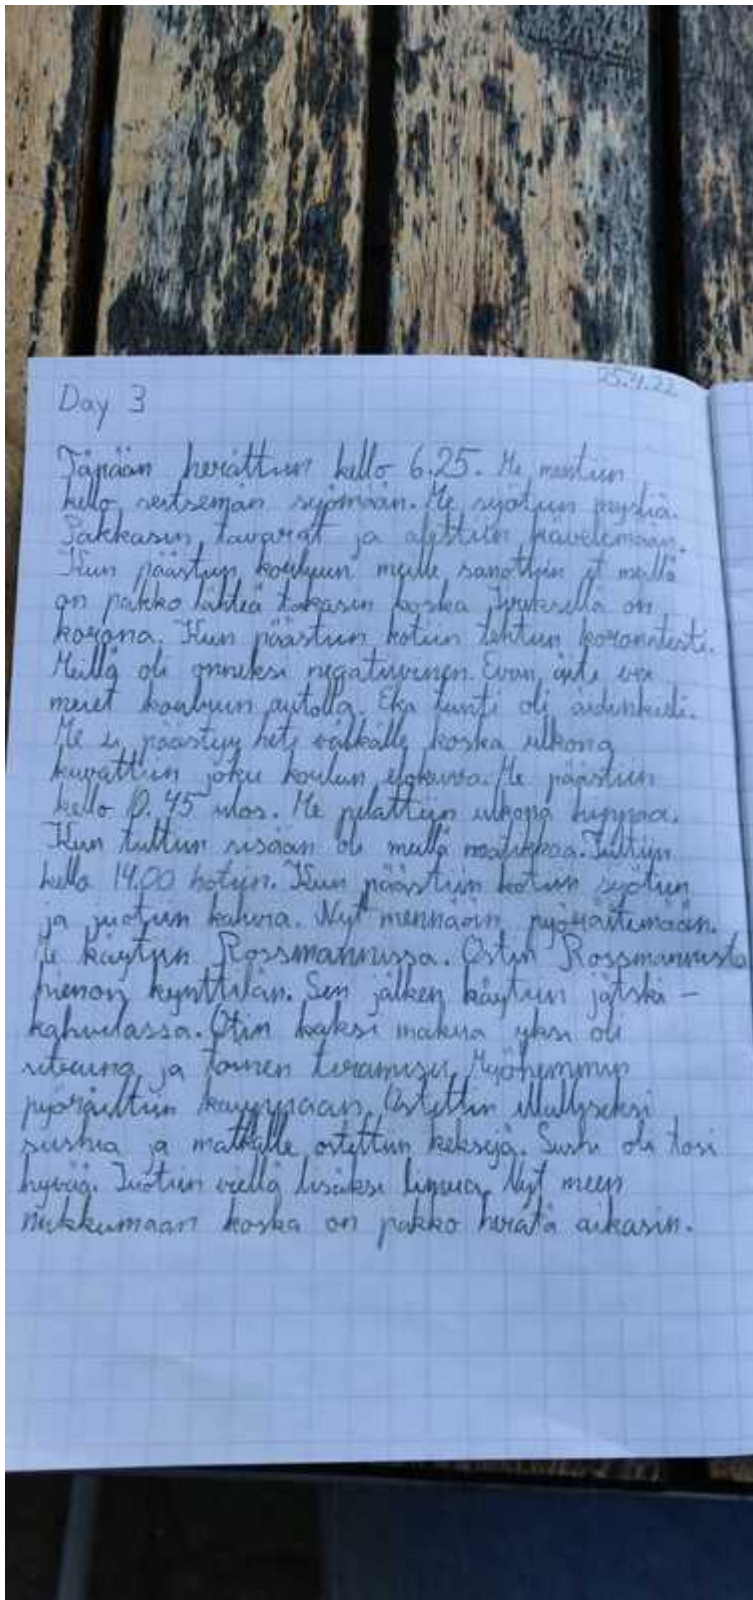 25.4.22
Day 3
Tänään herättiin kello 6.25. Me mentiin
kello seitsemän syömään. Me syötiin mysliä.
Pakkasin tavarat ja alettiin kävelemään.
Kun päästiin kouluun meille sanottiin et meillä
on pakko lähteä takasin koska on
korona. Kun päästiin kotiin tehtiin koronatesti.
Meillä oli onneksi negatiivinen. Evan äiti vei
meiet kouluun autolla. Eka tunti oli äidinkieli.
Me ei päästyy heti välkälle koska ulkona
kuvattiin joku koulun elokuva. Me päästiin
kello 45 ulos. Me pelattiin ulkona hyppää.
Kun tultiin sisään oli meillä matikkaa. Tultiin
kello 14.00 kotiin. Kun päästiin kotiin syötiin
ja juotiin kahvia. Nyt mennään pyöräilemään.
Me käytiin Rossmannissa. Ostin Rossmannista
hienon kynttilän. Sen jälken käytiin jätski-
kahvilassa. Otin kaksi makua yksi oli
sitruuna ja toinen tiramisu. Myöhemmin
pyöräiltiin kauppaan. Ostettiin illalliseksi
sushia ja matkalle ostettiin keksejä. Sushi oli tosi
hyvää. Juotiin viellä lisäksi limua. Nyt meen
nukkumaan koska on pakko herätä aikasin.